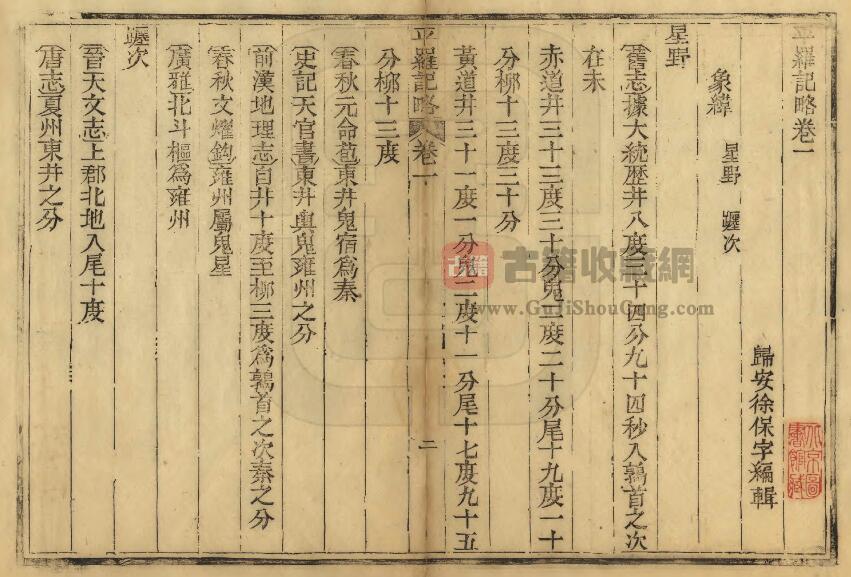 平羅記略卷一
歸安徐保字編輯
象緯 星野 躔次
星野
舊志據大統歷井八度三十四分九十四秒入鶉首之次
在未
赤道井三十三度三十分鬼二度二十分尾十九度一十
分柳十三度三十分
黃道井三十一度一分鬼二度十一分尾十七度九十五
平羅記略 卷一 二
分柳十三度
春秋元命苞東井鬼宿為秦
史記天官書東井輿鬼雍州之分
前漢地理志自井十度至柳三度為鶉首之次秦之分
春秋文燿鉤雍州屬鬼星
廣雅北斗樞為雍州
躔次
晉天文志上郡北地入尾十度
唐志夏州東井之分
古籍收藏網
www.GuJiShouCang.com